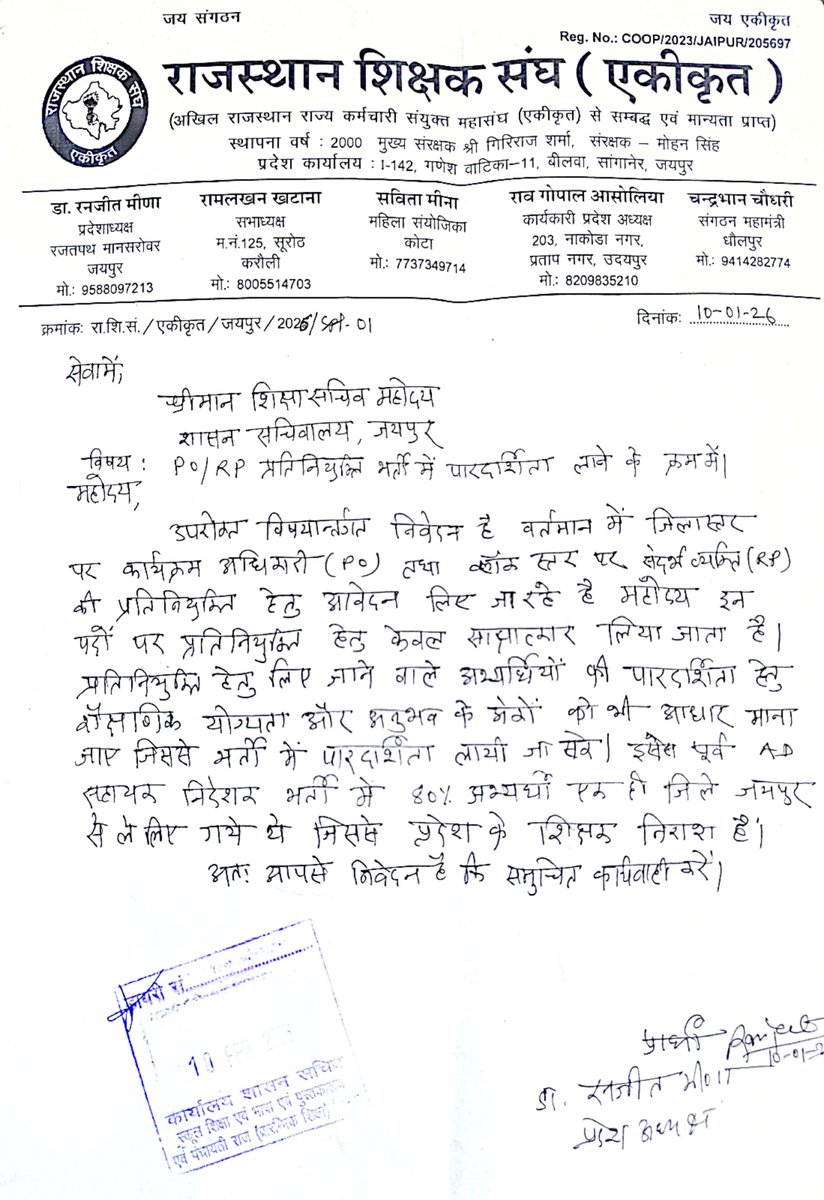 जय संगठन
जय एकीकृत
Reg. No.: COOP/2023/JAIPUR/205697
राजस्थान शिक्षक संघ
एकीकृत
राजस्थान शिक्षक संघ ( एकीकृत )
(अखिल राजस्थान राज्य कर्मचारी संयुक्त महासंघ (एकीकृत) से सम्बद्ध एवं मान्यता प्राप्त)
स्थापना वर्ष : 2000 मुख्य संरक्षक श्री गिरिराज शर्मा, संरक्षक – मोहन सिंह
प्रदेश कार्यालय : I-142, गणेश वाटिका–11, बीलवा, सांगानेर, जयपुर
डा. रनजीत मीणा
प्रदेशाध्यक्ष
रजतपथ मानसरोवर
जयपुर
मो.: 9588097213
रामलखन खटाना
सभाध्यक्ष
म.नं.125, सूरोठ
करौली
मो.: 8005514703
सविता मीना
महिला संयोजिका
कोटा
मो.: 7737349714
राव गोपाल आसोलिया
कार्यकारी प्रदेश अध्यक्ष
203, नाकोडा नगर,
प्रताप नगर, उदयपुर
मो.: 8209835210
चन्द्रभान चौधरी
संगठन महामंत्री
धौलपुर
मो.: 9414282774
क्रमांक: रा.शि.सं./एकीकृत/जयपुर/2026/ -01
दिनांक: 10-01-26
सेवामें,
श्रीमान शिक्षा सचिव महोदय
शासन सचिवालय, जयपुर
विषय : PO/RP प्रतिनियुक्ति भर्ती में पारदर्शिता लाने के क्रम में।
महोदय,
उपरोक्त विषयान्तर्गत निवेदन है वर्तमान में जिलास्तर
पर कार्यक्रम अधिकारी (PO) तथा ब्लॉक स्तर पर संदर्भ व्यक्ति (RP)
की प्रतिनियुक्ति हेतु आवेदन लिए जा रहे है महोदय इन
पदों पर प्रतिनियुक्ति हेतु केवल साक्षात्कार लिया जाता है।
प्रतिनियुक्ति हेतु लिए जाने वाले अभ्यर्थियों की पारदर्शिता हेतु
शैक्षणिक योग्यता और अनुभव के अंकों को भी आधार माना
जाए जिससे भर्ती में पारदर्शिता लायी जा सके। इससे पूर्व AD
सहायक निदेशक भर्ती में 80% अभ्यर्थी एक ही जिले जयपुर
से ले लिए गये थे जिससे प्रदेश के शिक्षक निराश है।
अतः आपसे निवेदन है कि समुचित कार्यवाही करें।
डायरी सं.
10
कार्यालय शासन सचिव
स्कूल शिक्षा एवं भाषा एवं पुस्तकालय
एवं पंचायती राज (प्रारम्भिक शिक्षा)
प्रार्थी
10-01-2
डा. रनजीत मीणा
प्रदेश अध्यक्ष